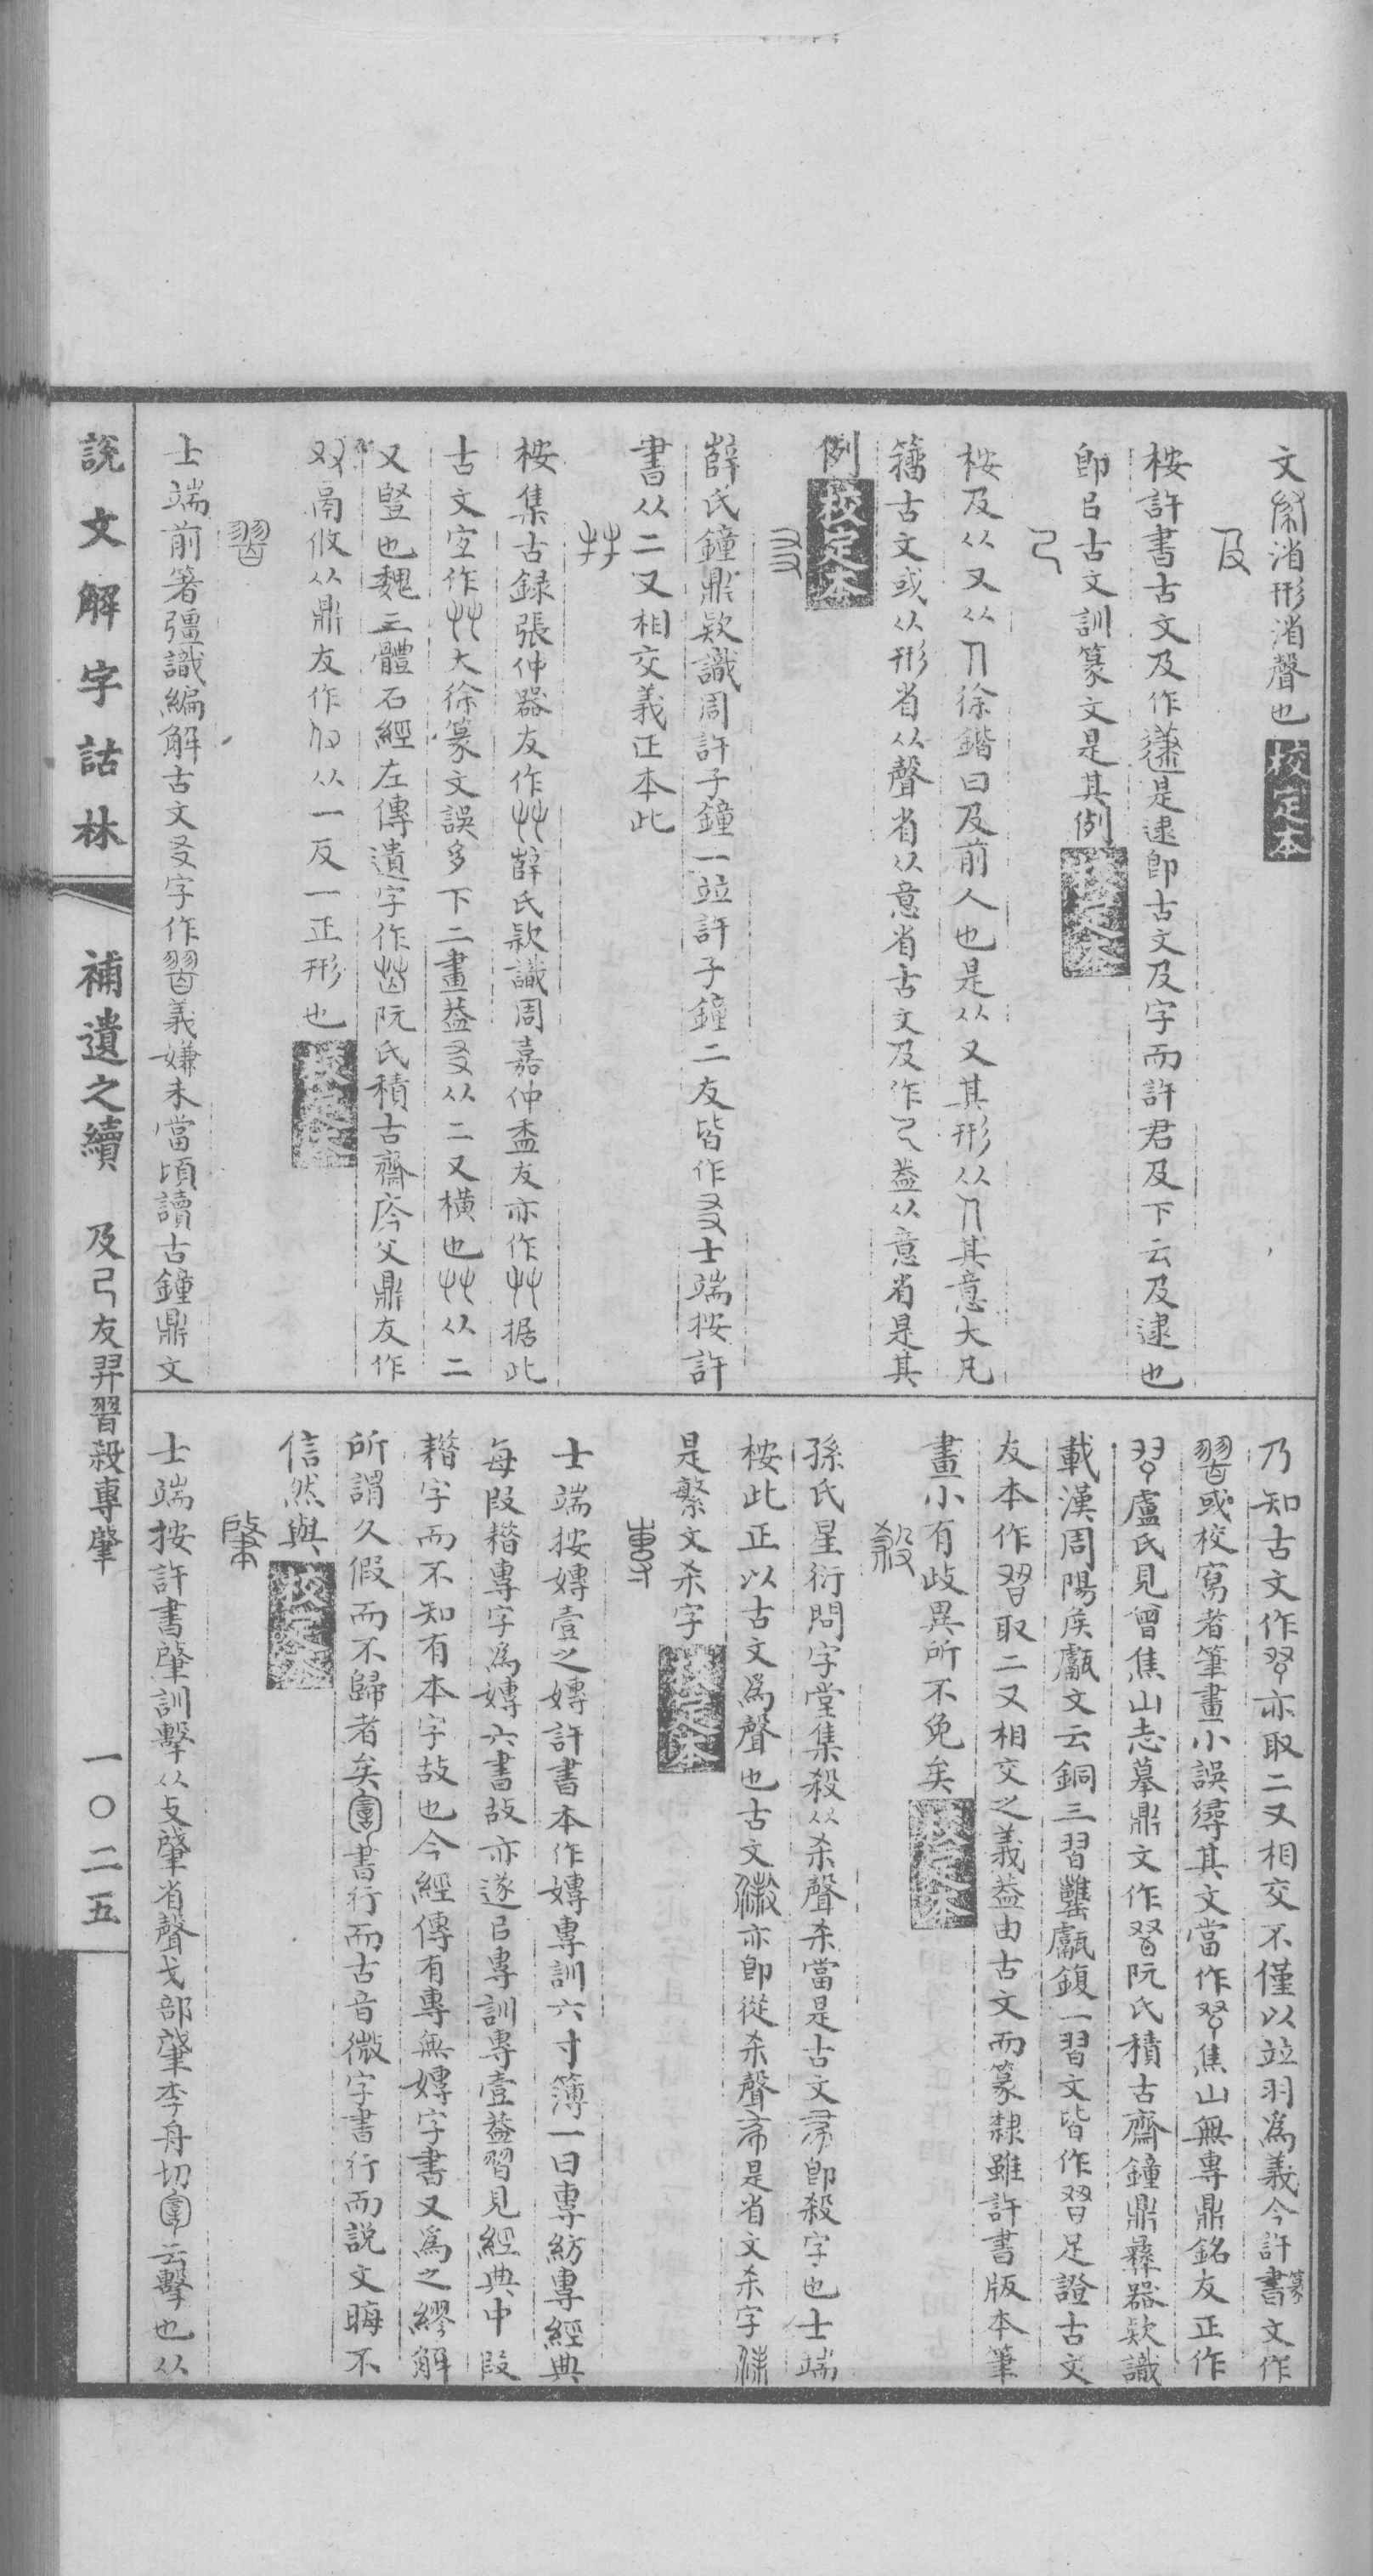 文滫形渻聲也校定本
及
桉許書古文及作是逮卽古文及字而許君及下云及逮也
卽㠯古文訓篆文是其例校定本
桉及从又从人徐鍇曰及前人也是从又其形从人其意大凡
籒古文或从形省从聲省从意省古文及作乁葢从意省是其
例校定本
薛氏鐘鼎欵識周許子鐘一竝許子鐘二友皆作㕛士端按許
書从二又相交義正本此
桉集古録張仲器友作艸薛氏欵識周嘉仲盉友亦作艸据此
古文㝎作艸大徐篆文誤多下二畫葢㕛从二又橫也艸从二
又豎也魏三體石經左傳遺字作阮氏積古齋父鼎友作
双鬲攸从鼎友作从一反一正形也校定本
士端前箸彊識編解古文㕛字作義嫌未當頃讀古鐘鼎文
乃知古文作亦取二又相交不僅以竝羽爲義今許書篆文作
或校寫者筆畫小誤㝷其文當作焦山無專鼎銘友正作
盧氏見曾焦山志摹鼎文作阮氏積古齋鐘鼎彝器欵識
載漢周陽矦甗文云銅三習甗鍑一習文皆作習足證古文
友本作習取二又相交之義葢由古文而篆隸雖許書版本筆
畫小有歧異所不免矣校定本
殺
孫氏星衍問字堂集殺从杀聲杀當是古文卽殺字也士端
桉此正以古文爲聲也古文亦卽從杀聲是省文杀字
是繁文杀字校定本
士端按嫥壹之嫥許書本作嫥專訓六寸簿一曰專紡專經典
每叚䎱專字爲嫥六書故亦遂㠯專訓專壹葢習見經典中叚
䎱字而不知有本字故也今經傳有專無嫥字書又爲之繆解
所謂久假而不歸者矣書行而古音微字書行而説文晦不
信然與校定本
肈
士端按許書肈訓擊从攴肈省聲戈部肈李舟切云擊也从
説文解字詁林 補遺之續 及弓友羿習殺專肈 一〇二五